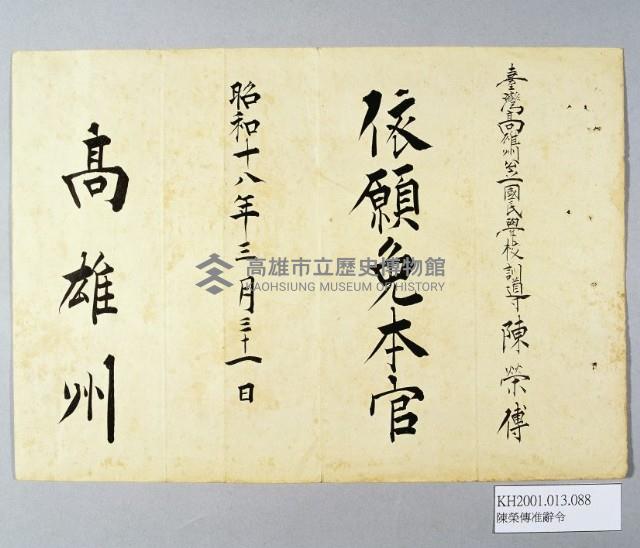 臺灣高雄州公立國民學校訓導 陳榮傅
依願免本官
昭和十八年三月三十一日
高雄州
高雄市立歷史博物館
KAOHSIUNG MUSEUM OF HISTORY
KH2001.013.088
陳榮傳准辭令